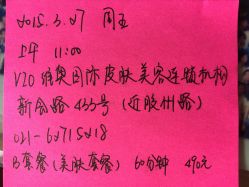 2015.3.27 周五
上午 11:00
V20 维奥国际皮肤美容连锁机构
新会路433号 (近胶州路)
021-60715218
B套餐(美肤套餐) 60分钟 490元